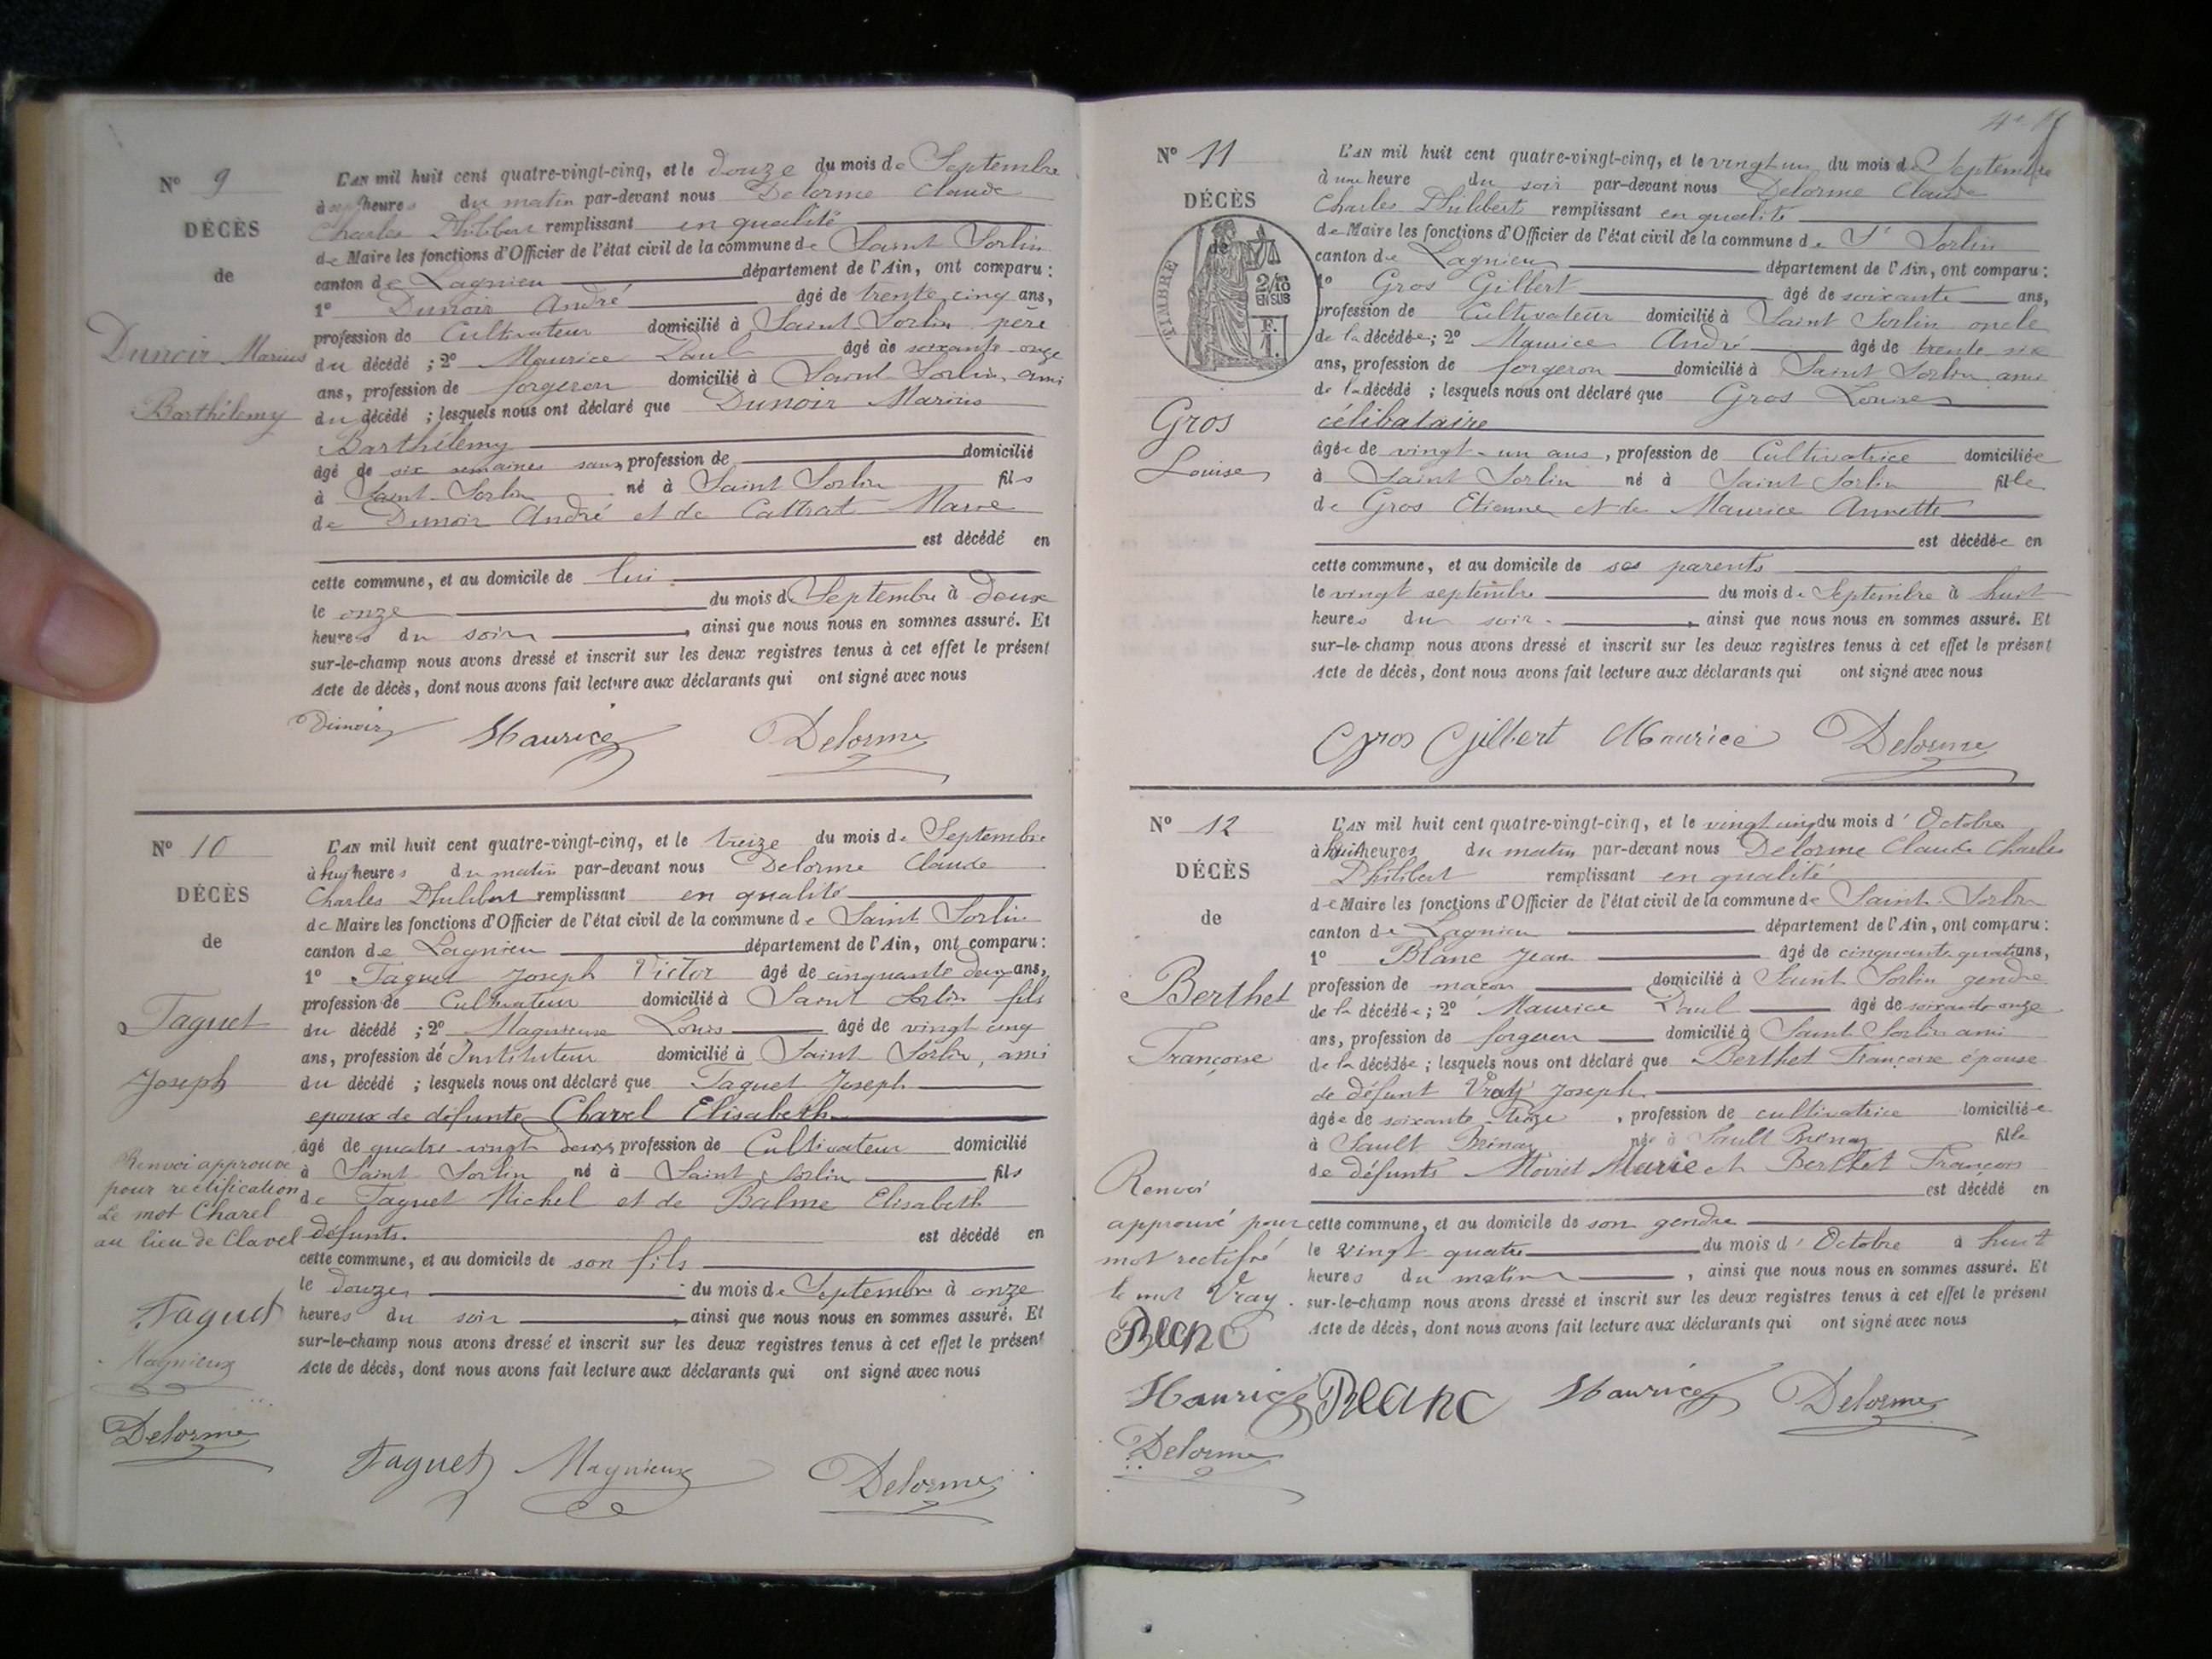 N° 9
DÉCÈS
de
Dunoir Marius
Barthélemy
L'AN mil huit cent quatre-vingt-cinq, et le douze du mois de Septembre
à sept heures du matin par-devant nous Delorme Claude
Charles Philibert remplissant en qualité
de Maire les fonctions d'Officier de l'état civil de la commune de Saint Sorlin
canton de Lagnieu département de l'Ain, ont comparu :
1° Dunoir André âgé de trente cinq ans,
profession de Cultivateur domicilié à Saint-Sorlin père
du décédé ; 2° Maurice Paul âgé de soixante onze
ans, profession de forgeron domicilié à Saint-Sorlin, ami
du décédé ; lesquels nous ont déclaré que Dunoir Marius
Barthélemy
âgé de six semaines sans profession de domicilié
à Saint-Sorlin né à Saint Sorlin fils
de Dunoir André et de Marie
est décédé en
cette commune, et au domicile de lui
le onze du mois de Septembre à deux
heures du soir, ainsi que nous nous en sommes assuré. Et
sur-le-champ nous avons dressé et inscrit sur les deux registres tenus à cet effet le présent
Acte de décès, dont nous avons fait lecture aux déclarants qui ont signé avec nous
Dunoir Maurice Delorme
N° 10
DÉCÈS
de
Taguet
Joseph
Renvoi approuvé
pour rectification
Le mot Charel
au lieu de Clavel
Taguet
Magnieux
Delorme
L'AN mil huit cent quatre-vingt-cinq, et le treize du mois de Septembre
à huit heures du matin par-devant nous Delorme Claude
Charles Philibert remplissant en qualité
de Maire les fonctions d'Officier de l'état civil de la commune de Saint Sorlin
canton de Lagnieu département de l'Ain, ont comparu :
1° Taguet Joseph Victor âgé de cinquante deux ans,
profession de Cultivateur domicilié à Saint Sorlin fils
du décédé ; 2° Magnieux Louis âgé de vingt cinq
ans, profession de Instituteur domicilié à Saint Sorlin, ami
du décédé ; lesquels nous ont déclaré que Taguet Joseph
époux de défunte Charel Elisabeth
âgé de quatre vingt deux, profession de Cultivateur domicilié
à Saint Sorlin né à Saint Sorlin fils
de Taguet Michel et de Balme Elisabeth
défunts. est décédé en
cette commune, et au domicile de son fils
le douze du mois de Septembre à onze
heures du soir, ainsi que nous nous en sommes assuré. Et
sur-le-champ nous avons dressé et inscrit sur les deux registres tenus à cet effet le présent
Acte de décès, dont nous avons fait lecture aux déclarants qui ont signé avec nous
Taguet Magnieux Delorme
N° 11
DÉCÈS
de
TIMBRE
2/10
EN SUS
F.
1.
Gros
Louise
L'AN mil huit cent quatre-vingt-cinq, et le vingt un du mois de Septembre
à une heure du soir par-devant nous Delorme Claude
Charles Philibert remplissant en qualité
de Maire les fonctions d'Officier de l'état civil de la commune de St Sorlin
canton de Lagnieu département de l'Ain, ont comparu :
1° Gros Gilbert âgé de soixante ans,
profession de Cultivateur domicilié à Saint Sorlin oncle
de la décédée ; 2° Maurice André âgé de trente six
ans, profession de forgeron domicilié à Saint Sorlin, ami
de la décédé ; lesquels nous ont déclaré que Gros Louise
célibataire
âgée de vingt-un ans, profession de Cultivatrice domiciliée
à Saint Sorlin né à Saint Sorlin fille
de Gros Etienne et de Maurice Annette
est décédée en
cette commune, et au domicile de ses parents
le vingt septembre du mois de Septembre à huit
heures du soir, ainsi que nous nous en sommes assuré. Et
sur-le-champ nous avons dressé et inscrit sur les deux registres tenus à cet effet le présent
Acte de décès, dont nous avons fait lecture aux déclarants qui ont signé avec nous
Gros Gilbert Maurice Delorme
N° 12
DÉCÈS
de
Berthet
Françoise
Renvoi
approuvé pour
mot rectifié
le mot Vray.
Blanc
Maurice
Delorme
L'AN mil huit cent quatre-vingt-cinq, et le vingt cinq du mois d'Octobre
à huit heures du matin par-devant nous Delorme Claude Charles
Philibert remplissant en qualité
de Maire les fonctions d'Officier de l'état civil de la commune de Saint-Sorlin
canton de Lagnieu département de l'Ain, ont comparu :
1° Blanc Jean âgé de cinquante quatre ans,
profession de maçon domicilié à Saint Sorlin gendre
de la décédée ; 2° Maurice Paul âgé de soixante onze
ans, profession de forgeron domicilié à Saint-Sorlin ami
de la décédée ; lesquels nous ont déclaré que Berthet Françoise épouse
de défunt Vray Joseph
âgée de soixante treize, profession de cultivatrice domiciliée
à Sault Brénaz née à Sault Brénaz fille
de défunts Moiret Marie et Berthet François
est décédé en
cette commune, et au domicile de son gendre
le vingt quatre du mois d'Octobre à huit
heures du matin, ainsi que nous nous en sommes assuré. Et
sur-le-champ nous avons dressé et inscrit sur les deux registres tenus à cet effet le présent
Acte de décès, dont nous avons fait lecture aux déclarants qui ont signé avec nous
Blanc Maurice Delorme